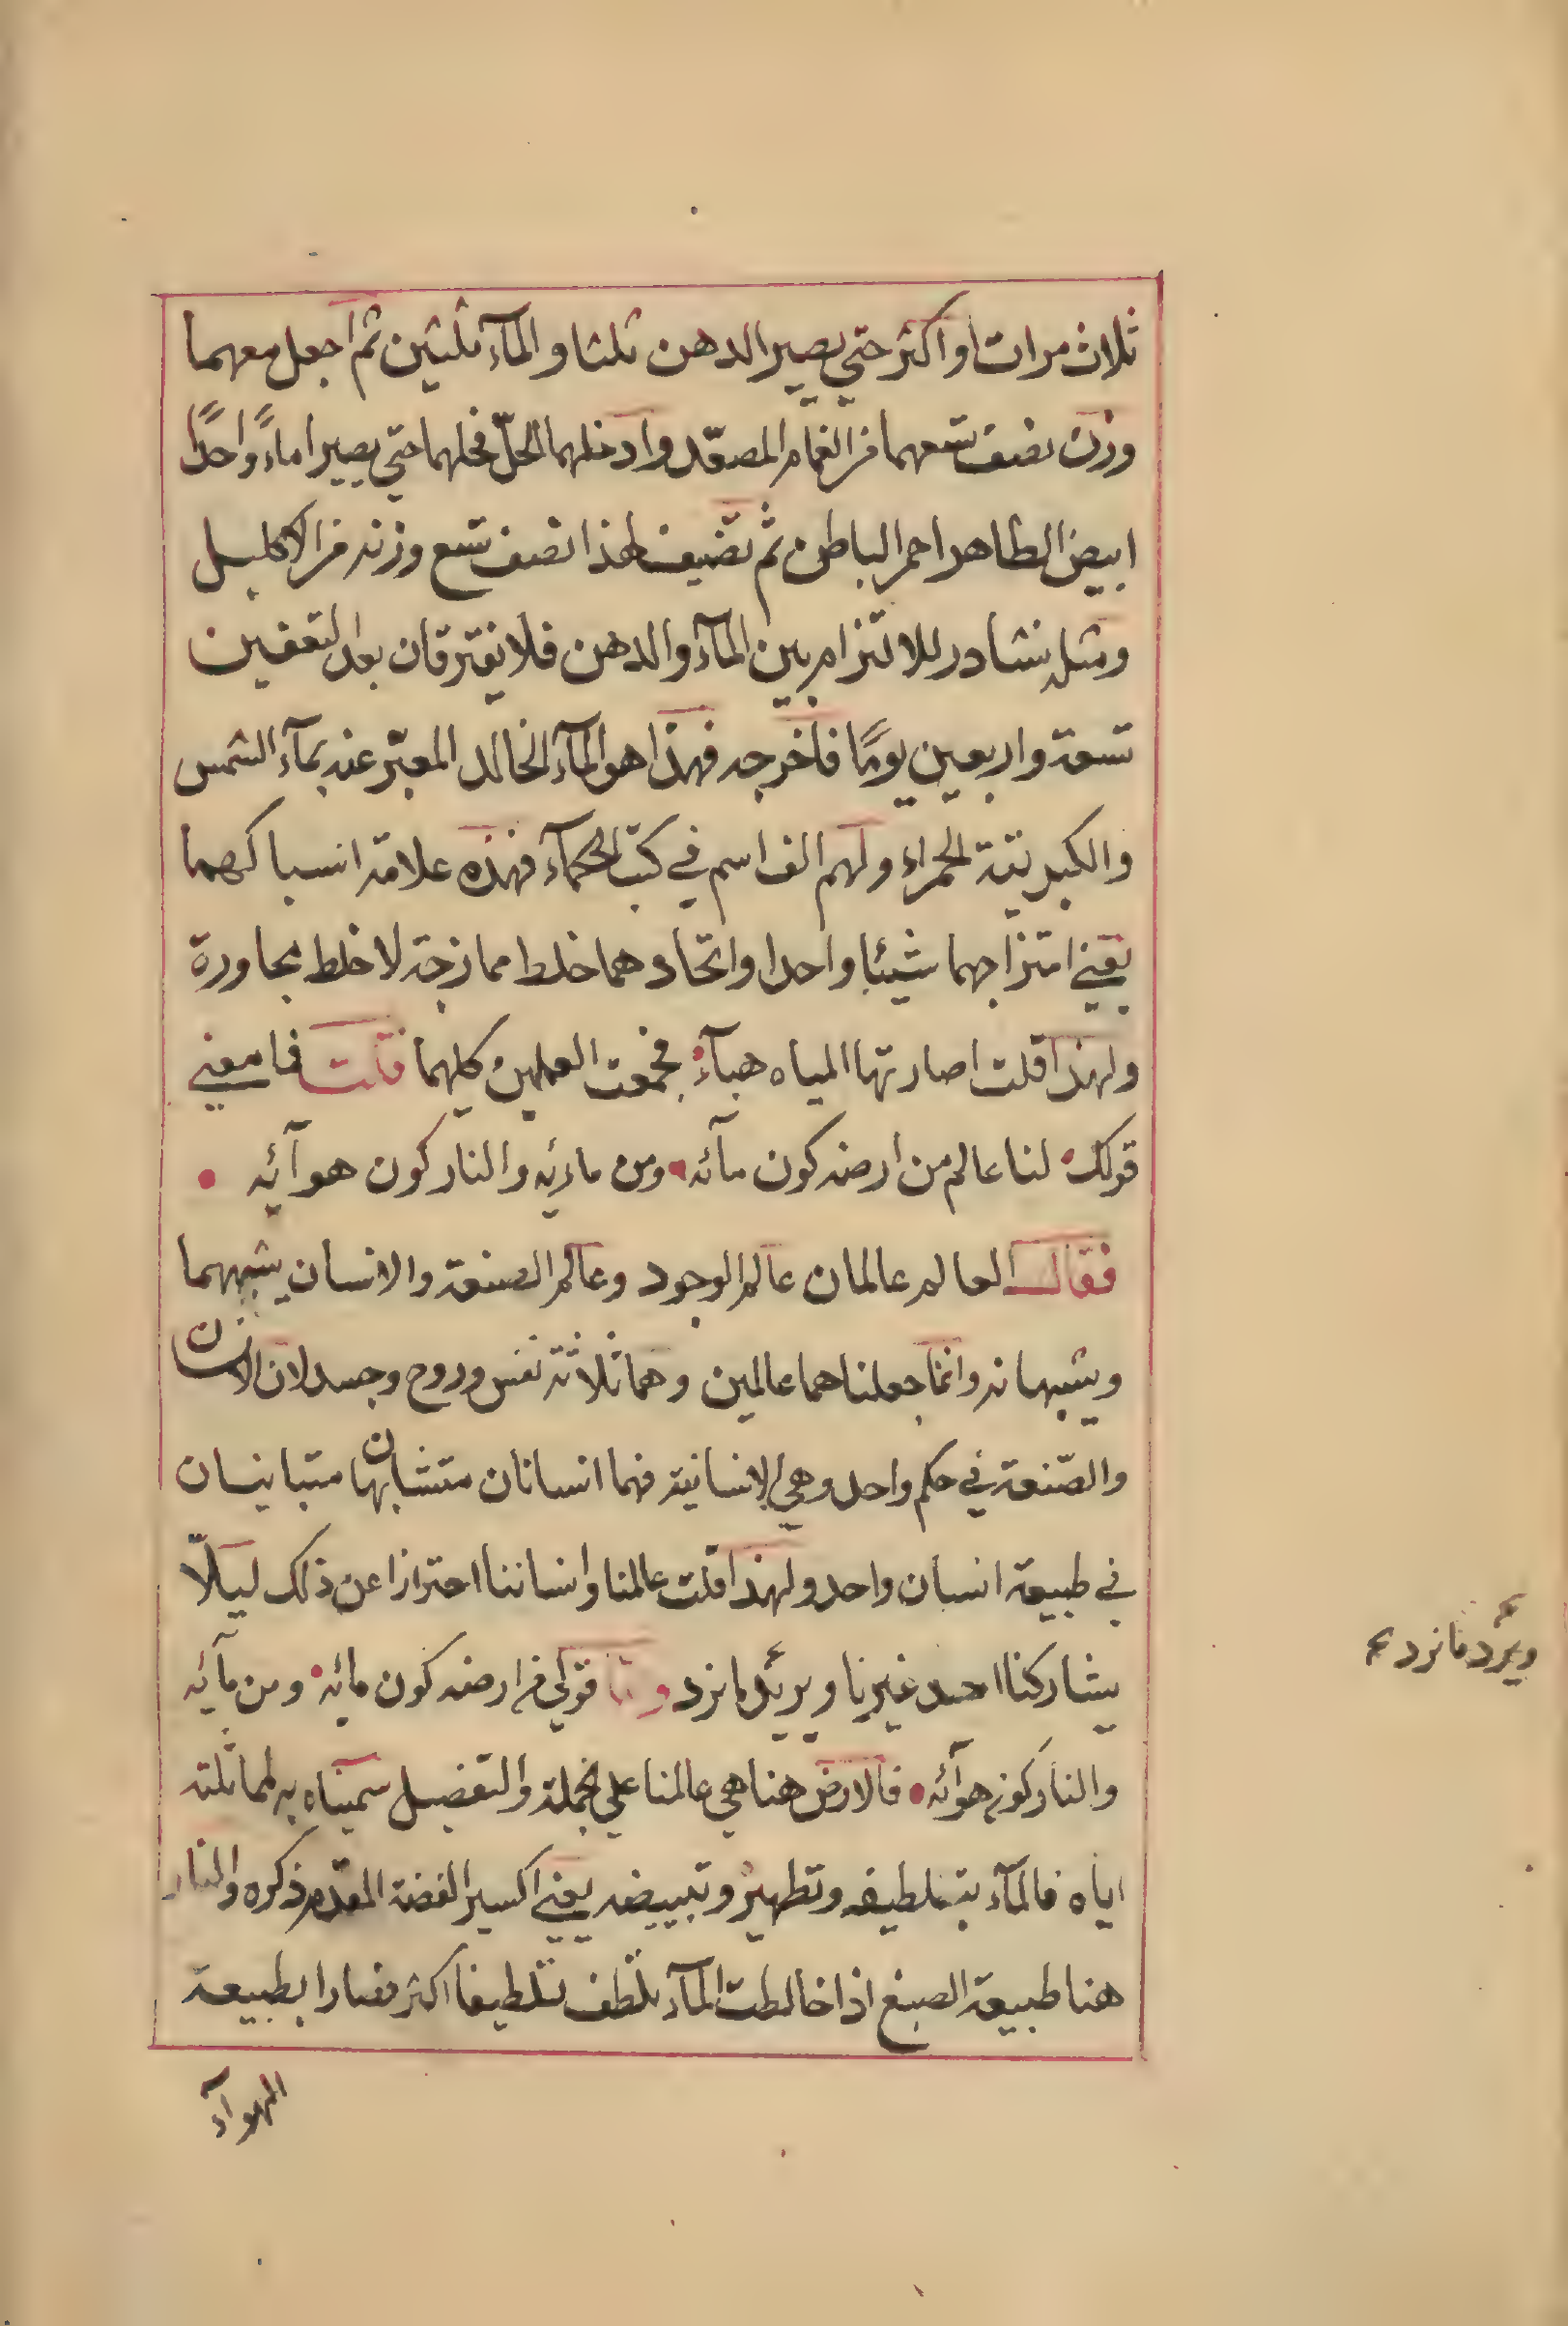 ثلاث مرات او اكثر حتي يصير الدهن ثلثا والمآء ثلثين ثم اجعل معهما
وزن نصف تسعهما من الغمام المصعّد وادخلهما الحلّ فحلهما حتي يصيرا ماءً واحدًا
ابيض الظاهر احمر الباطن ثم تضيف لهذا نصف تسع وزنه من الاكليل
ومثله نشادر للالتزام بين المآء والدهن فلا يفترقان بعد التعفين
تسعة واربعين يومًا فاخرجه فهذا هو المآء الخالد المعبّر عنه بمآء الشمس
والكبريتة الحمراء ولهم الف اسم في كتب الحكمآء فهذه علامة انسباكهما
يعني امتزاجهما شيئا واحدا واتحادهما خلط ممازجة لا خلط مجاورة
ولهذا قلت اصارتها المياه هبآء فجمعت العملين كليهما قلت فما معني
قولك لنا عالم من ارضه كون مآئه ومن مائه والنار كون هوآئه
فقال العالم عالمان عالم الوجود وعالم الصنعة والانسان يشبههما
ويشبهانه وانما جعلناهما عالمين وهما ثلاثة نفس وروح وجسد لان الانسان
والصّنعة في حكم واحد وهي الانسانية فهما انسانان متشابهان متباينان
في طبيعة انسان واحد ولهذا قلت عالمنا وانساننا احترازا عن ذلك ليلّا
يشاركنا احد غيرنا ويريد ما نرد واما قولي من ارضه كون مائه ومن مآئه
والنار كون هوآئه فالارض هنا هي عالمنا علي الجملة والتفصيل سميناه به لمماثلته
اياه فالمآء بتلطيفه وتطهيره وتبييضه يعني اكسير الفضة المقدم ذكره والنار
هنا طبيعة الصبغ اذا خالطت المآء تلطف تلطيفا اكثر فصارا بطبيعة
الهوآء
ويرد ما نرد